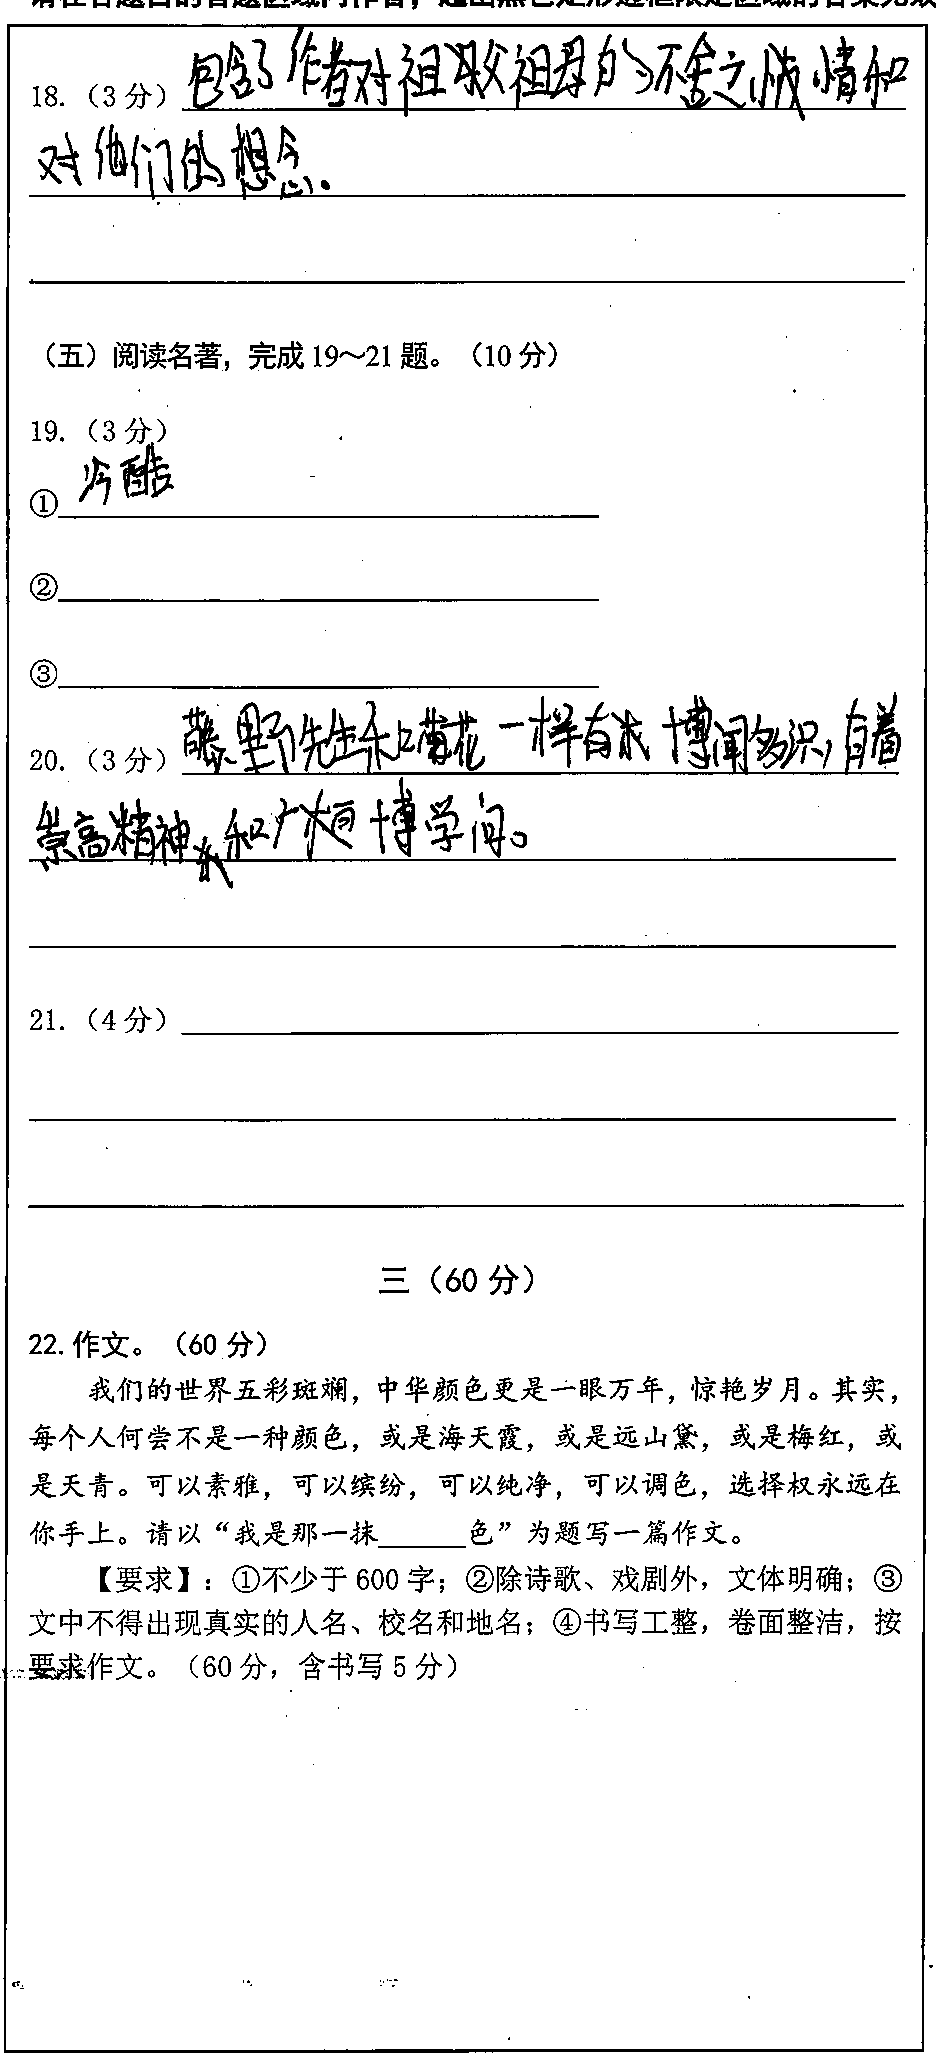 请在各题目的答题区域内作答，超出黑色矩形边框限定区域的答案无效
18.（3分）包含了作者对祖父祖母的不舍之情和
对他们的想念.
（五）阅读名著，完成19～21题。（10分）
19.（3分）
①冷酷
②
③
20.（3分）藤野先生和菊花一样有 博闻多识，有着
崇高精神 和广 博学问。
21.（4分）
三（60分）
22.作文。（60分）
我们的世界五彩斑斓，中华颜色更是一眼万年，惊艳岁月。其实，
每个人何尝不是一种颜色，或是海天霞，或是远山黛，或是梅红，或
是天青。可以素雅，可以缤纷，可以纯净，可以调色，选择权永远在
你手上。请以“我是那一抹______色”为题写一篇作文。
【要求】：①不少于600字；②除诗歌、戏剧外，文体明确；③
文中不得出现真实的人名、校名和地名；④书写工整，卷面整洁，按
要求作文。（60分，含书写5分）